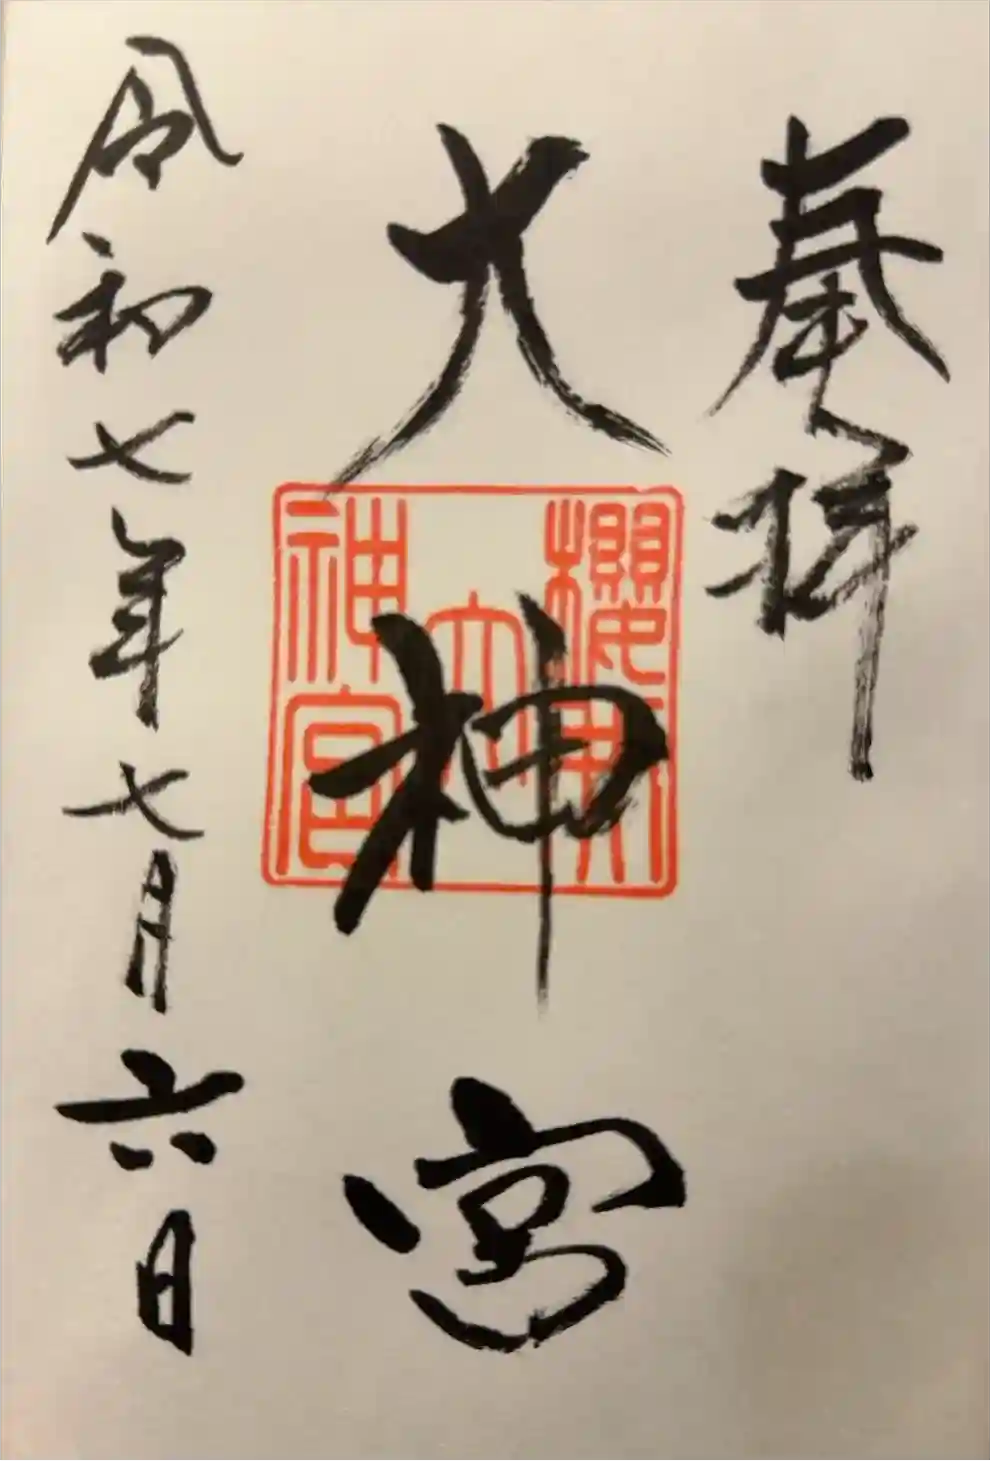 奉拝
大神宮
櫻井大神宮
令和七年七月六日